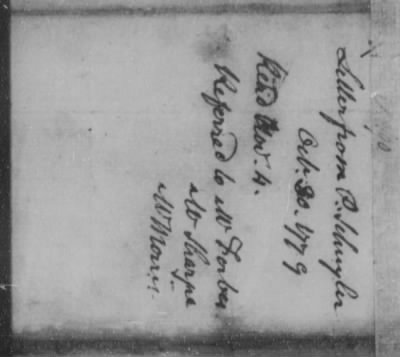 Letter from P. Schuyler
Oct. 20. 1779
Read Nov. 4.
Referred to Mr Forbes
Mr Sharpe
Mr Morris